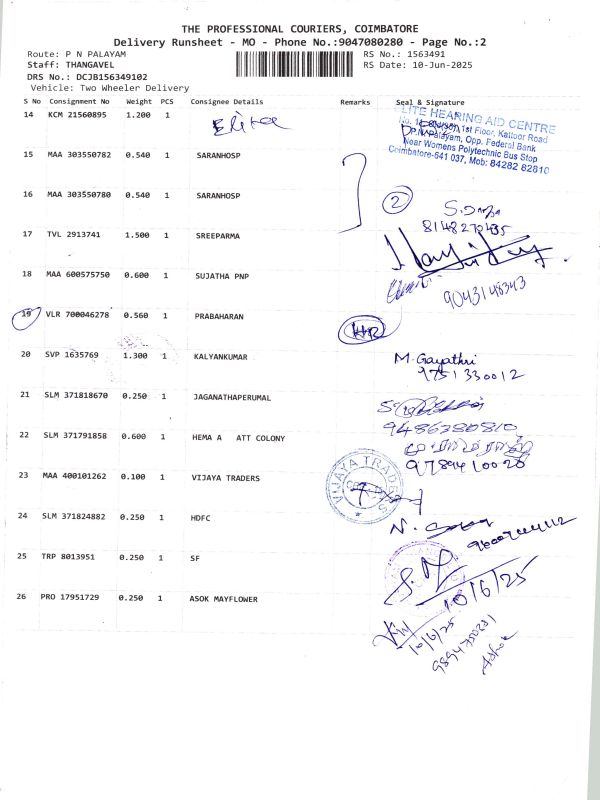 THE PROFESSIONAL COURIERS, COIMBATORE
Delivery Runsheet - MO - Phone No.:9047080280 - Page No.:2
Route: P N PALAYAM RS No.: 1563491
Staff: THANGAVEL RS Date: 10-Jun-2025
DRS No.: DCJB156349102
Vehicle: Two Wheeler Delivery
S No Consignment No Weight PCS Consignee Details Remarks Seal & Signature
14 KCM 21560895 1.200 1
LITE HEARING AID CENTRE
1st Floor, Kattoor Road
P.N.Palayam, Opp. Federal Bank
Near Womens Polytechnic Bus Stop
Coimbatore-641 037, Mob: 84282 82810
15 MAA 303550782 0.540 1 SARANHOSP
16 MAA 303550780 0.540 1 SARANHOSP 2
8148270435
17 TVL 2913741 1.500 1 SREEPARMA
18 MAA 600575750 0.600 1 SUJATHA PNP
9043148343
19 VLR 700046278 0.560 1 PRABAHARAN
20 SVP 1635769 1.300 1 KALYANKUMAR M. Gayathri
9751330012
21 SLM 371818670 0.250 1 JAGANATHAPERUMAL
9486380810
22 SLM 371791858 0.600 1 HEMA A ATT COLONY
9789410026
23 MAA 400101262 0.100 1 VIJAYA TRADERS VIJAYA TRADERS
24 SLM 371824882 0.250 1 HDFC
25 TRP 8013951 0.250 1 SF
10/6/25
26 PRO 17951729 0.250 1 ASOK MAYFLOWER
10/6/25
Ashok